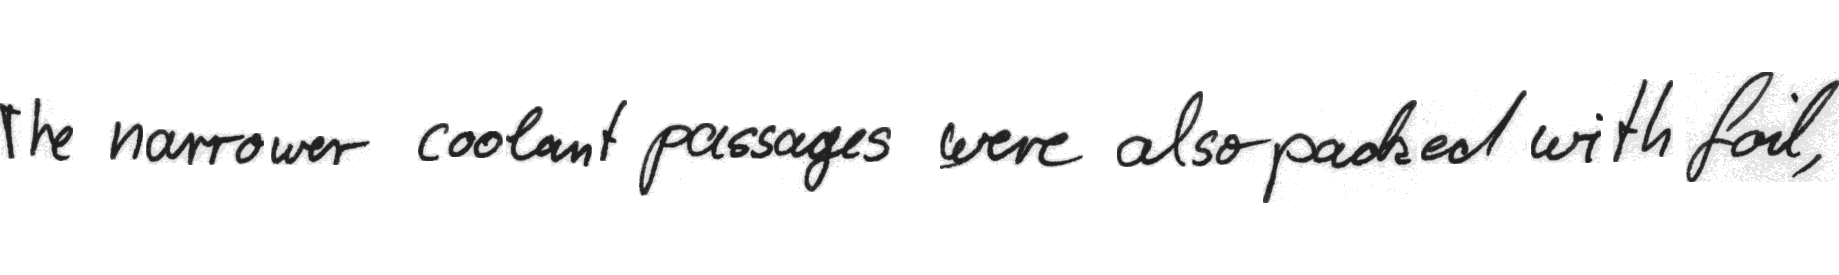 The narrower coolant passages were also packed with foil,